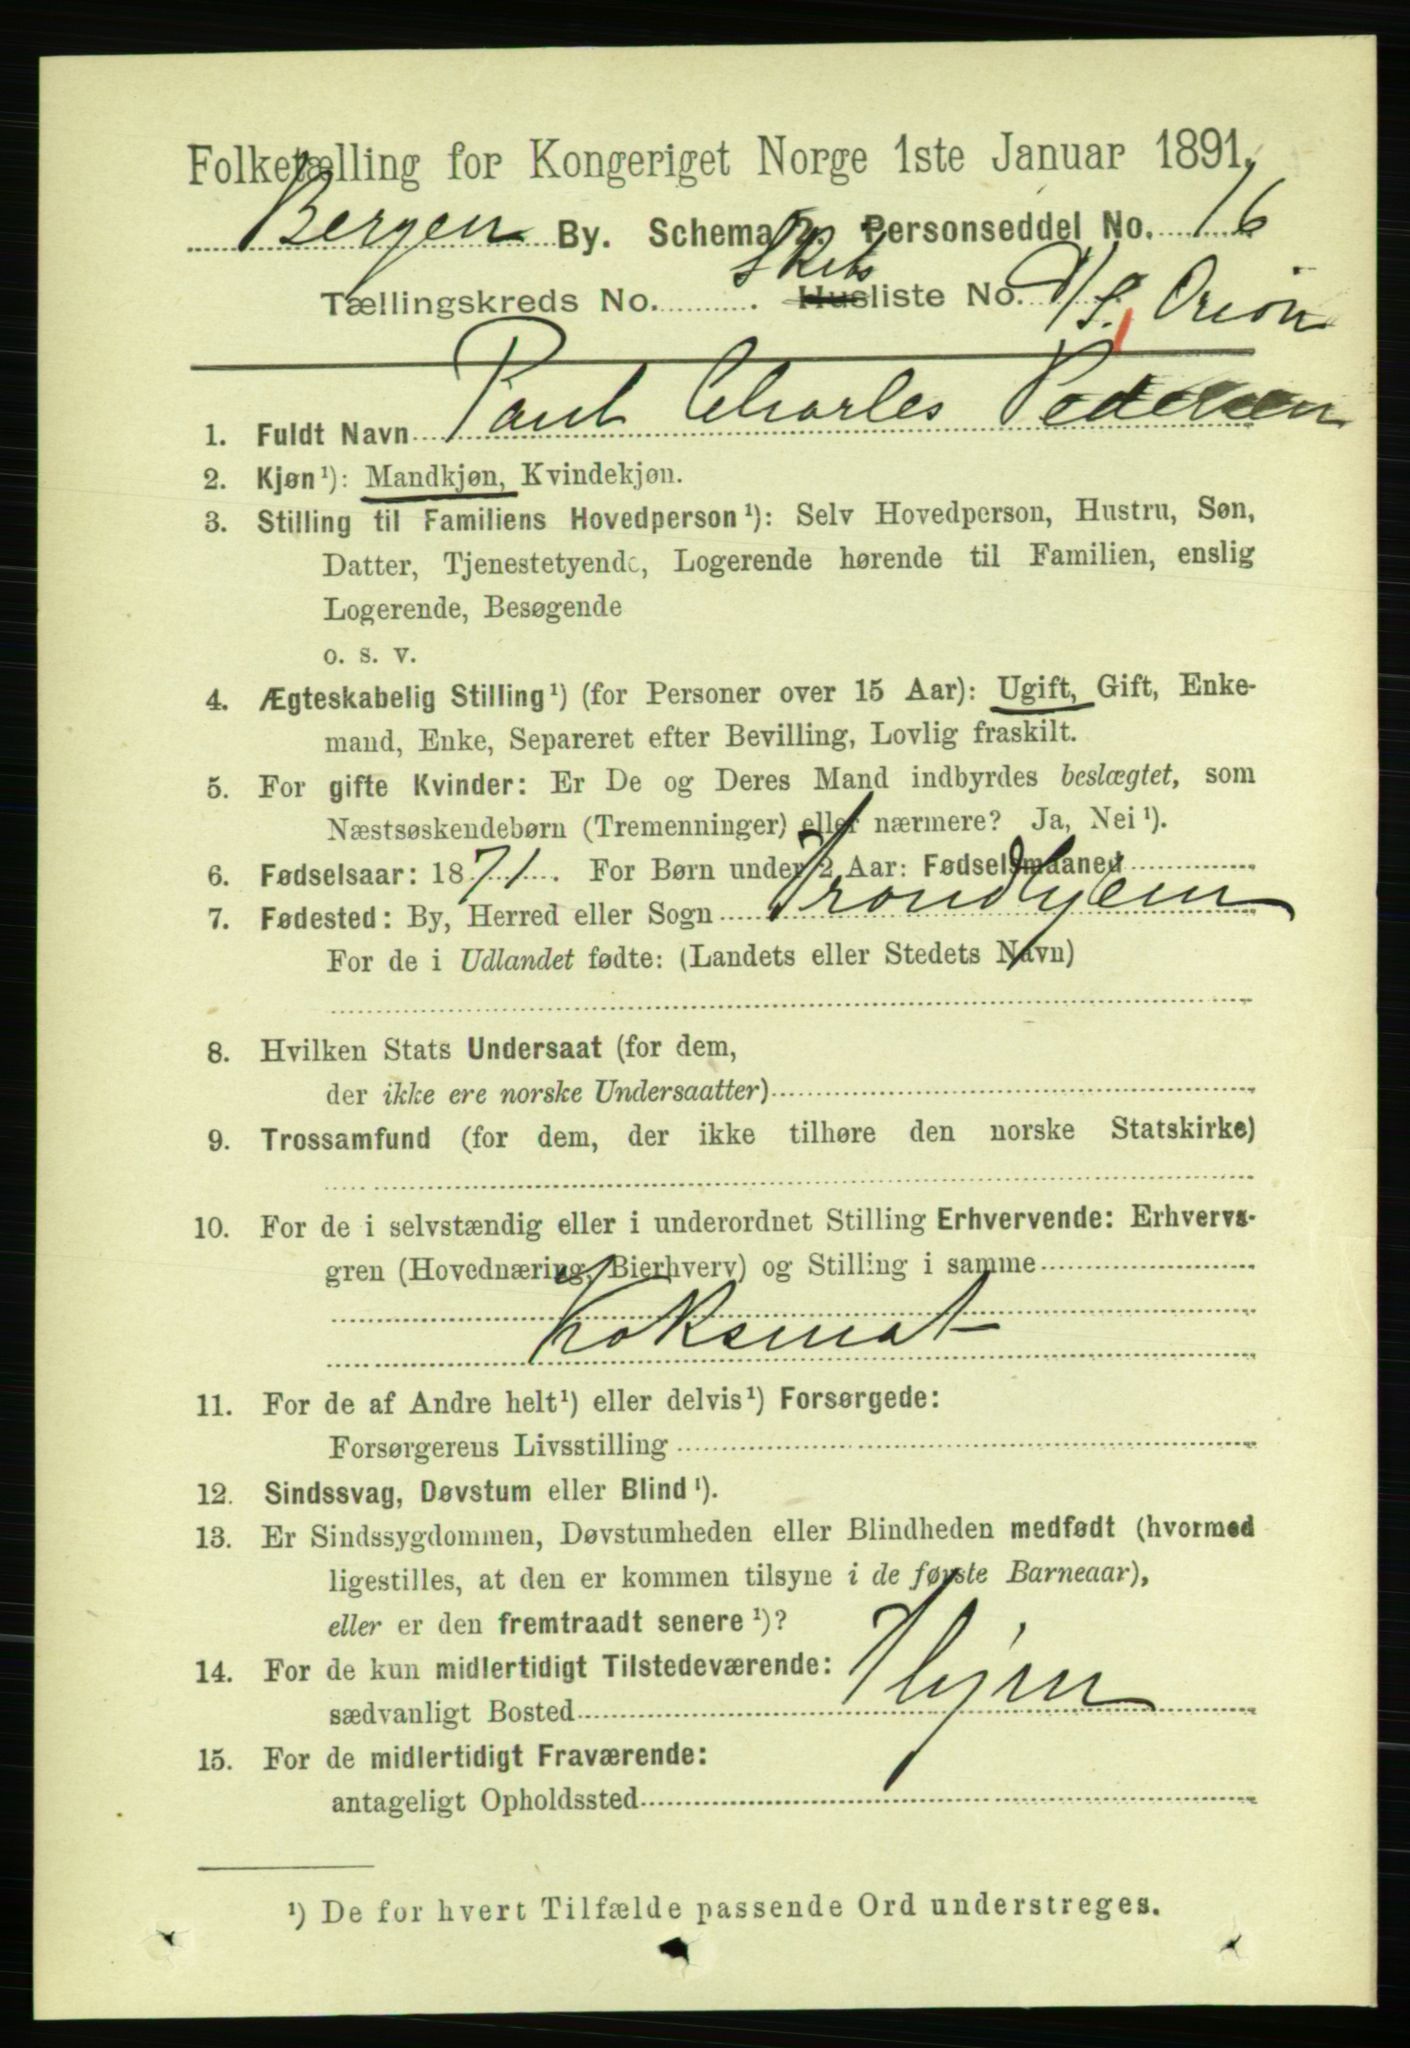 Folketælling for Kongeriget Norge 1ste Januar 1891.
Bergen By. Schema 2. Personseddel No. 16
Tællingskreds No. . Husliste No. Skibs D/S. Orion
1. Fuldt Navn Paul Charles Pedersen
2. Kjøn¹): Mandkjøn, Kvindekjøn.
3. Stilling til Familiens Hovedperson¹): Selv Hovedperson, Hustru, Søn,
Datter, Tjenestetyende, Logerende hørende til Familien, enslig
Logerende, Besøgende
o. s. v.
4. Ægteskabelig Stilling¹) (for Personer over 15 Aar): Ugift, Gift, Enke-
mand, Enke, Separeret efter Bevilling, Lovlig fraskilt.
5. For gifte Kvinder: Er De og Deres Mand indbyrdes beslægtet, som
Næstsøskendebørn (Tremenninger) eller nærmere? Ja, Nei¹).
6. Fødselsaar: 1871. For Børn under 2 Aar: Fødselsmaaned
7. Fødested: By, Herred eller Sogn Trondhjem
For de i Udlandet fødte: (Landets eller Stedets Navn)
8. Hvilken Stats Undersaat (for dem,
der ikke ere norske Undersaatter)
9. Trossamfund (for dem, der ikke tilhøre den norske Statskirke)
10. For de i selvstændig eller i underordnet Stilling Erhvervende: Erhvervs-
gren (Hovednæring, Bierhverv) og Stilling i samme
Koksmat
11. For de af Andre helt¹) eller delvis¹) Forsørgede:
Forsørgerens Livsstilling
12. Sindssvag, Døvstum eller Blind¹).
13. Er Sindssygdommen, Døvstumheden eller Blindheden medfødt (hvormed
ligestilles, at den er kommen tilsyne i de første Barneaar),
eller er den fremtraadt senere¹)?
14. For de kun midlertidigt Tilstedeværende:
sædvanligt Bosted Thjem
15. For de midlertidigt Fraværende:
antageligt Opholdssted
¹) De for hvert Tilfælde passende Ord understreges.